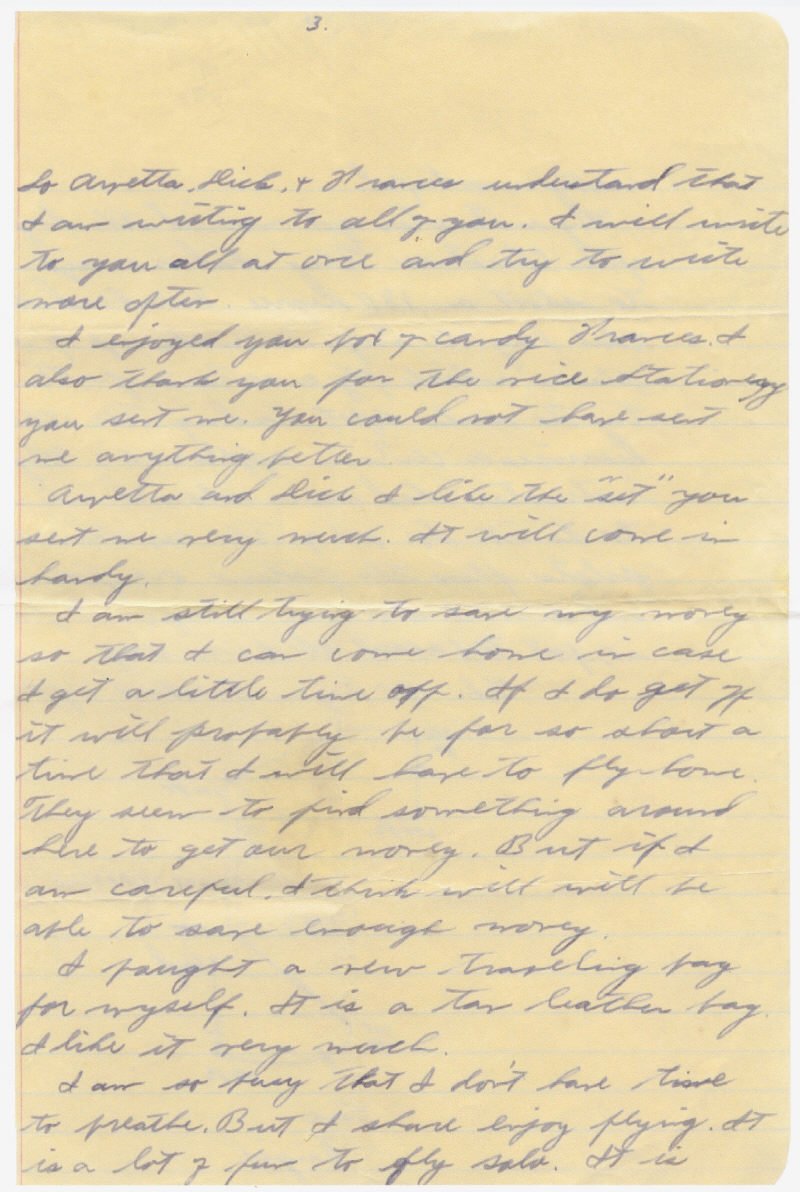 3.
So Arretta, Dick, & Frances understand that
I am writing to all of you. I will write
to you all at once and try to write
more often.
I enjoyed you box of candy Frances. I
also thank you for the nice stationery
you sent me. You could not have sent
me anything better
Arretta and Dick I like the "set" you
sent me very much. It will come in
handy.
I am still trying to save my money
so that I can come home in case
I get a little time off. If I do get off
it will probably be for so short a
time that I will have to fly home.
They seem to find something around
here to get our money. But if I
am careful, I think will will be
able to save enough money.
I bought a new traveling bag
for myself. It is a tan leather bag.
I like it very much.
I am so busy that I don't have time
to breathe. But I shure enjoy flying. It
is a lot of fun to fly solo. It is